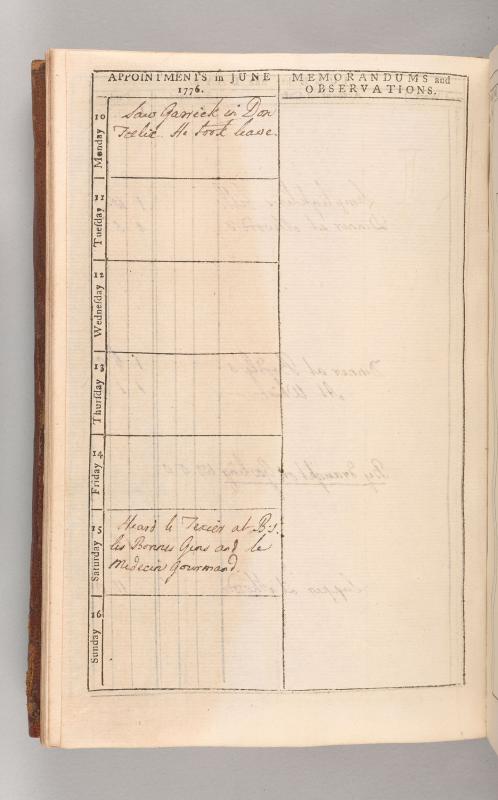 APPOINTMENTS in JUNE
1776.
MEMORANDUMS and
OBSERVATIONS.
Monday 10
Saw Garrick in Don
Felix. He took leave.
Tueſday 11
Wedneſday 12
Thurſday 13
Friday 14
Saturday 15
Heard le Texier at B:s.
les Bonnes Gens and le
Medecin Gourmand.
Sunday 16